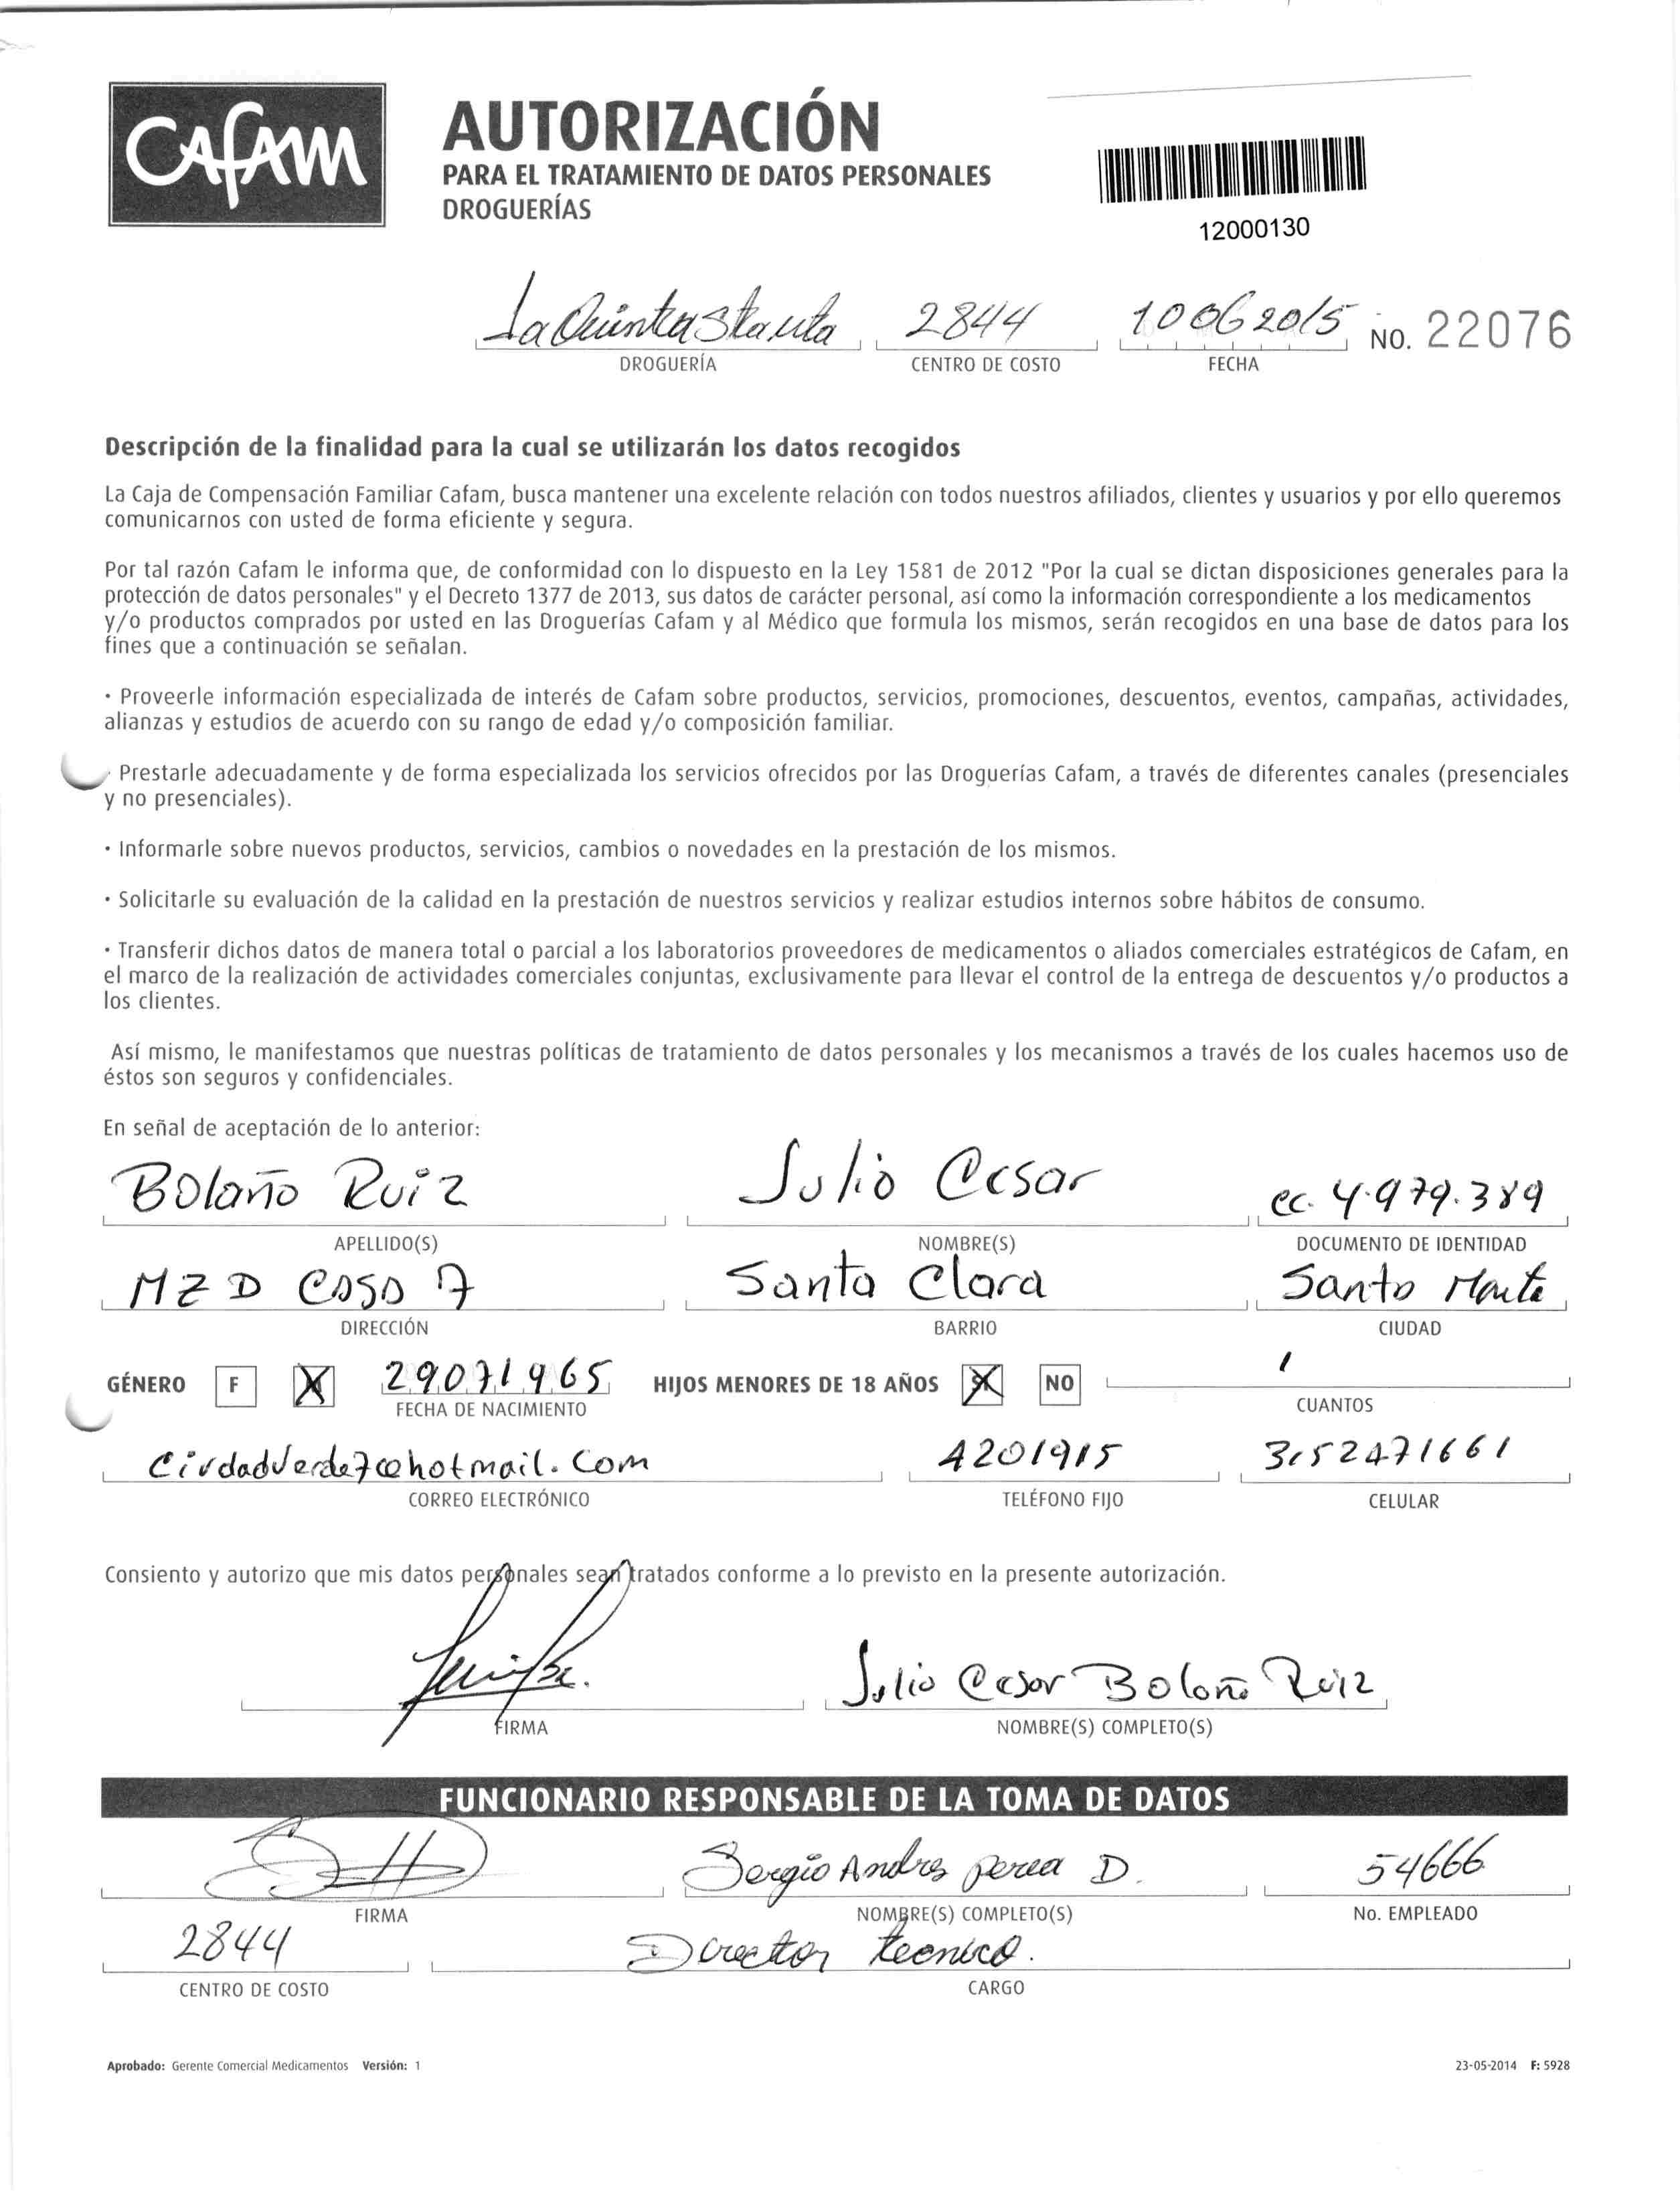 CAFAM
AUTORIZACIÓN
PARA EL TRATAMIENTO DE DATOS PERSONALES
DROGUERÍAS
12000130
La Quinta Sta Mta 2844 10 06 2015 NO. 22076
DROGUERÍA CENTRO DE COSTO FECHA
Descripción de la finalidad para la cual se utilizarán los datos recogidos
La Caja de Compensación Familiar Cafam, busca mantener una excelente relación con todos nuestros afiliados, clientes y usuarios y por ello queremos
comunicarnos con usted de forma eficiente y segura.
Por tal razón Cafam le informa que, de conformidad con lo dispuesto en la Ley 1581 de 2012 "Por la cual se dictan disposiciones generales para la
protección de datos personales" y el Decreto 1377 de 2013, sus datos de carácter personal, así como la información correspondiente a los medicamentos
y/o productos comprados por usted en las Droguerías Cafam y al Médico que formula los mismos, serán recogidos en una base de datos para los
fines que a continuación se señalan.
· Proveerle información especializada de interés de Cafam sobre productos, servicios, promociones, descuentos, eventos, campañas, actividades,
alianzas y estudios de acuerdo con su rango de edad y/o composición familiar.
· Prestarle adecuadamente y de forma especializada los servicios ofrecidos por las Droguerías Cafam, a través de diferentes canales (presenciales
y no presenciales).
· Informarle sobre nuevos productos, servicios, cambios o novedades en la prestación de los mismos.
· Solicitarle su evaluación de la calidad en la prestación de nuestros servicios y realizar estudios internos sobre hábitos de consumo.
· Transferir dichos datos de manera total o parcial a los laboratorios proveedores de medicamentos o aliados comerciales estratégicos de Cafam, en
el marco de la realización de actividades comerciales conjuntas, exclusivamente para llevar el control de la entrega de descuentos y/o productos a
los clientes.
Así mismo, le manifestamos que nuestras políticas de tratamiento de datos personales y los mecanismos a través de los cuales hacemos uso de
éstos son seguros y confidenciales.
En señal de aceptación de lo anterior:
Bolaño Ruiz Julio Cesar cc. 4.979.389
APELLIDO(S) NOMBRE(S) DOCUMENTO DE IDENTIDAD
MZ D Casa 7 Santa Clara Santa Marta
DIRECCIÓN BARRIO CIUDAD
GÉNERO F X 29071965 HIJOS MENORES DE 18 AÑOS X NO 1
FECHA DE NACIMIENTO CUANTOS
Ciudadverde7@hotmail.com 4201915 3152471661
CORREO ELECTRÓNICO TELÉFONO FIJO CELULAR
Consiento y autorizo que mis datos personales sean tratados conforme a lo previsto en la presente autorización.
Julio Cesar Bolaño Ruiz
FIRMA NOMBRE(S) COMPLETO(S)
FUNCIONARIO RESPONSABLE DE LA TOMA DE DATOS
Sergio Andres Perea D. 54666
FIRMA NOMBRE(S) COMPLETO(S) No. EMPLEADO
2844 Director tecnico.
CENTRO DE COSTO CARGO
Aprobado: Gerente Comercial Medicamentos Versión: 1 23-05-2014 F: 5928